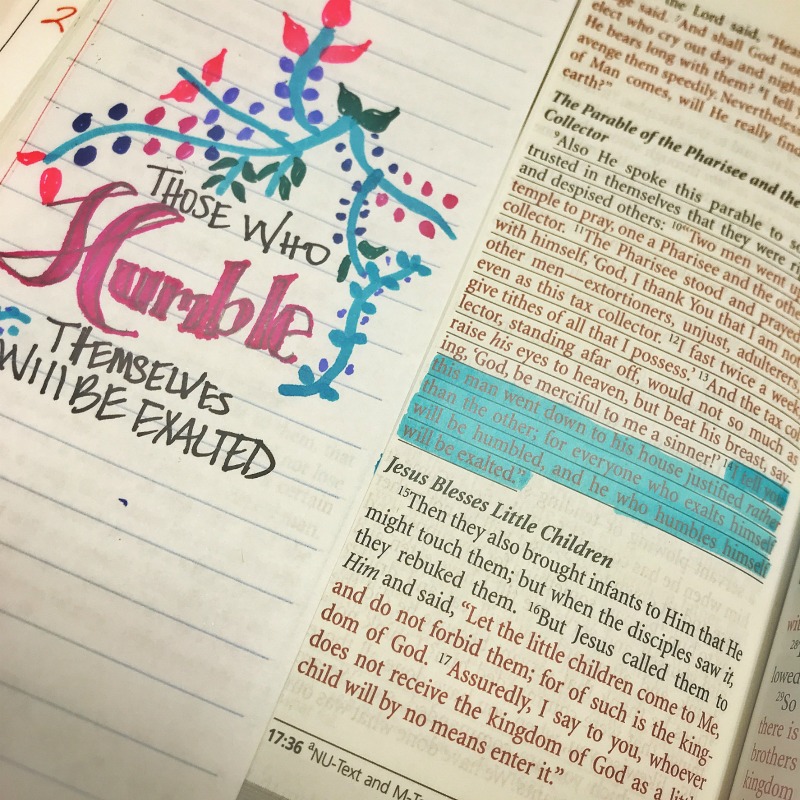 2
THOSE WHO
Humble
THEMSELVES
WIll BE EXALTED
the Lord said, "Hear
said. ⁷And shall God not
elect who cry out day and night
He bears long with them? ⁸I tell
avenge them speedily. Nevertheless
of Man comes, will He really find
earth?"
The Parable of the Pharisee and the
Collector
⁹Also He spoke this parable to
trusted in themselves that they were
and despised others: ¹⁰"Two men went
temple to pray, one a Pharisee and the other
collector. ¹¹The Pharisee stood and prayed
with himself, 'God, I thank You that I am not
other men—extortioners, unjust, adulterers,
even as this tax collector. ¹²I fast twice a week
give tithes of all that I possess.' ¹³And the tax col
lector, standing afar off, would not so much as
raise his eyes to heaven, but beat his breast, say-
ing, 'God, be merciful to me a sinner!' ¹⁴I tell you
this man went down to his house justified rather
than the other; for everyone who exalts himself
will be humbled, and he who humbles himself
will be exalted."
Jesus Blesses Little Children
¹⁵Then they also brought infants to Him that He
might touch them; but when the disciples saw it,
they rebuked them. ¹⁶But Jesus called them to
Him and said, "Let the little children come to Me,
and do not forbid them; for of such is the king-
dom of God. ¹⁷Assuredly, I say to you, whoever
does not receive the kingdom of God as a little
child will by no means enter it."
17:36 ᵃNU-Text and M-T
28
lowed
²⁹So
there is
brothers
kingdom